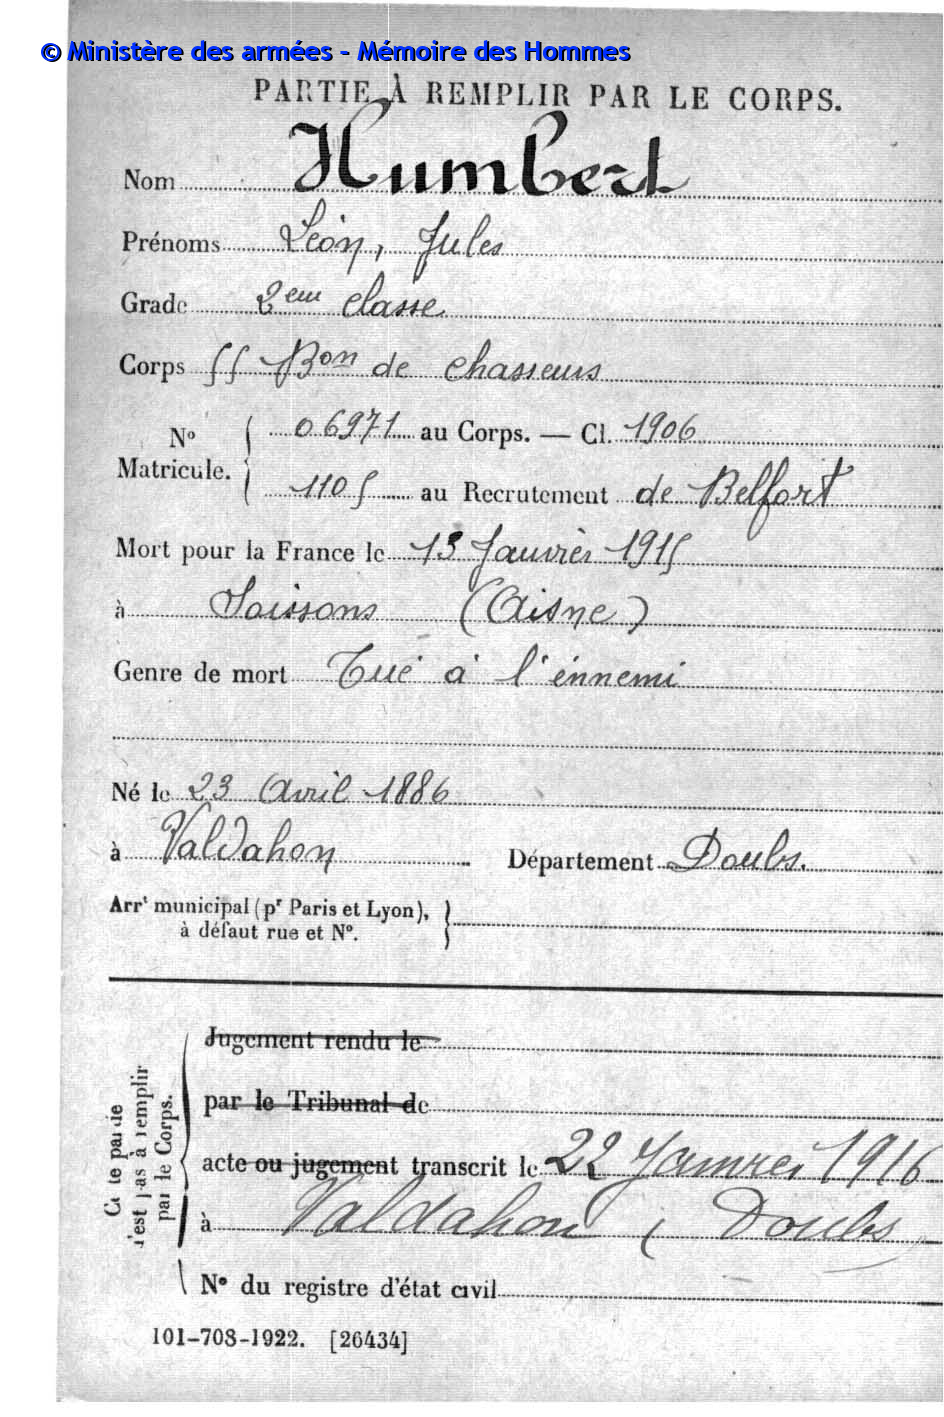 © Ministère des armées - Mémoire des Hommes
PARTIE À REMPLIR PAR LE CORPS.
Nom Humbert
Prénoms Léon, Jules
Grade 2eme classe
Corps 55 Bon de chasseurs
No Matricule. { 06971 au Corps. — Cl. 1906
1105 au Recrutement de Belfort
Mort pour la France le 13 Janvièr 1915
à Soissons (Aisne)
Genre de mort Tué à l'énnemi
Né le 23 Avril 1886
à Valdahon Département Doubs.
Arrt municipal (pr Paris et Lyon),
à défaut rue et No.
Cette partie
n'est pas à remplir
par le Corps.
Jugement rendu le
par le Tribunal de
acte ou jugement transcrit le 22 Janvier 1916
à Valdahon (Doubs)
No du registre d'état civil
101-708-1922. [26434]